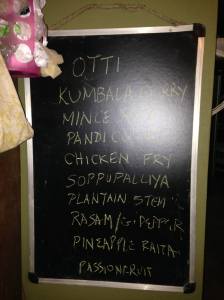 OTTI
KUMBALA CURRY
MINCE
PANDI CURRY
CHICKEN FRY
SOPPUPALLIYA
PLANTAIN STEM
RASAM/G. PEPPER
PINEAPPLE RAITA
PASSIONFRUIT